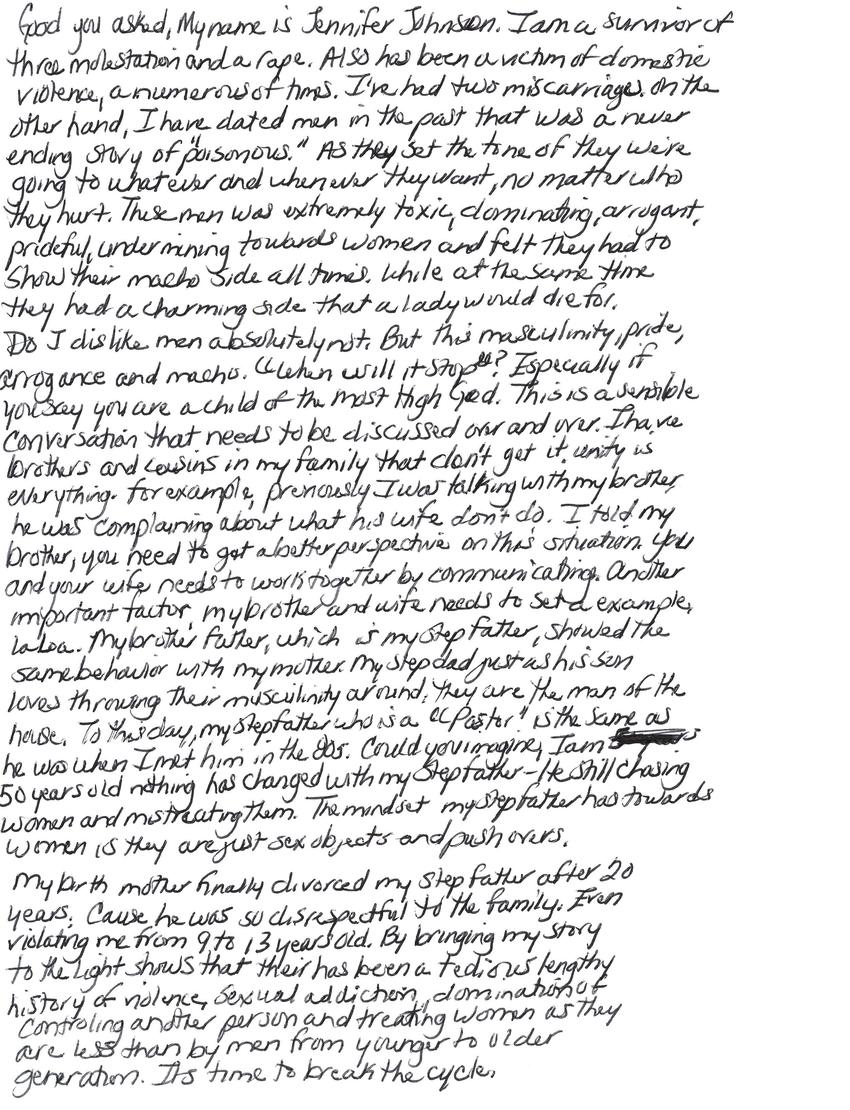 Good you asked, My name is Jennifer Johnson. I am a survivor of
three molestation and a rape. Also has been a victim of domestic
violence, a numerous of times. I've had two miscarriages. On the
other hand, I have dated men in the past that was a never
ending story of "poisonous." As they set the tone of they we're
going to whatever and whenever they want, no matter who
they hurt. These men was extremely toxic, dominating, arrogant,
prideful, undermining towards women and felt they had to
Show their macho side all times. While at the same time
they had a charming side that a lady would die for.
Do I dislike men absolutely not. But this masculinity, pride,
arrogance and macho. "When will it stop"? Especially if
you say you are a child of the most High God. This is a sensible
Conversation that needs to be discussed over and over. I have
brothers and cousins in my family that don't get it. unity is
everything. For example, previously I was talking with my brother,
he was complaining about what his wife don't do. I told my
brother, you need to get a better perspective on this situation. You
and your wife needs to work together by communicating. Another
important factor, my brother and wife needs to set a example,
My brother father, which is my step father, showed the
same behavior with my mother. My step dad just as his son
loves throwing their musculinity around, they are the man of the
house. To this day, my stepfather who is a "Pastor" is the same as
he was when I met him in the 80s. Could you imagine, I am
50 years old nothing has changed with my Stepfather - He still chasing
women and mistreating them. The mindset my stepfather has towards
women is they are just sex objects and push overs.
My birth mother finally divorced my step father after 20
years. Cause he was so disrespectful to the family. Even
violating me from 9 to 13 years old. By bringing my story
to the light shows that their has been a tedious lengthy
history of violence, sexual addiction, domination of
Controling another person and treating women as they
are less than by men from younger to older
generation. Its time to break the cycle.